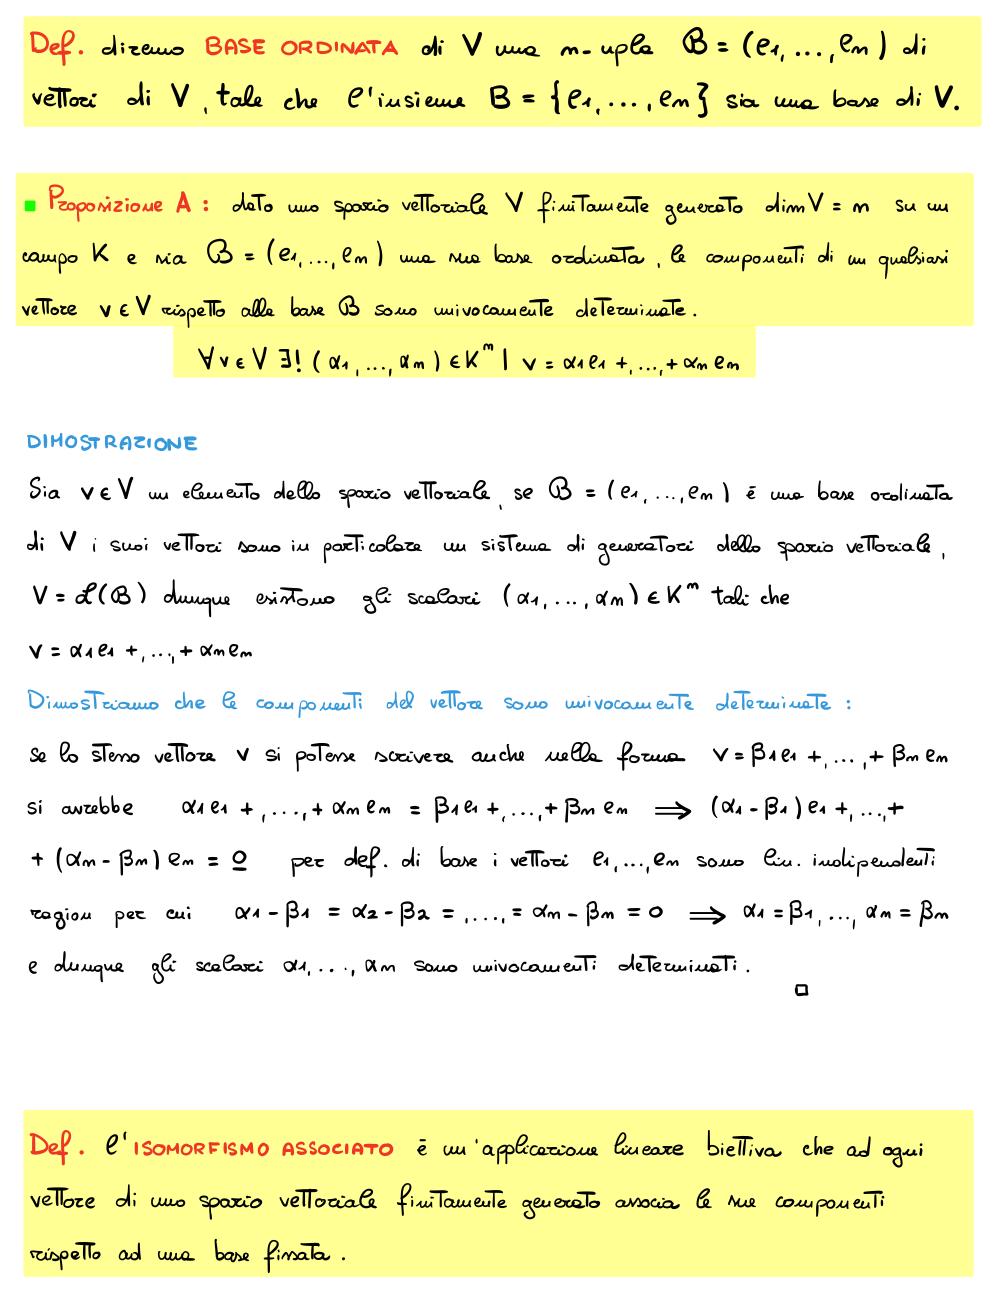 Def. diremo BASE ORDINATA di V una n-upla B = (e1, ..., en) di
vettori di V, tale che l'insieme B = {e1, ..., en} sia una base di V.
Proposizione A : dato uno spazio vettoriale V finitamente generato dim V = n su un
campo K e sia B = (e1, ..., en) una sua base ordinata, le componenti di un qualsiasi
vettore v ∈ V rispetto alla base B sono univocamente determinate.
∀v ∈ V ∃! (α1, ..., αn) ∈ Kⁿ | v = α1e1 +, ..., + αn en
DIMOSTRAZIONE
Sia v ∈ V un elemento dello spazio vettoriale, se B = (e1, ..., en) è una base ordinata
di V i suoi vettori sono in particolare un sistema di generatori dello spazio vettoriale,
V = L(B) dunque esistono gli scalari (α1, ..., αn) ∈ Kⁿ tali che
v = α1e1 +, ..., + αn en
Dimostriamo che le componenti del vettore sono univocamente determinate :
se lo stesso vettore v si potesse scrivere anche nella forma v = β1e1 +, ..., + βn en
si avrebbe α1e1 +, ..., + αn en = β1e1 +, ..., + βn en ⟹ (α1 - β1) e1 +, ..., +
+ (αn - βn) en = 0 per def. di base i vettori e1, ..., en sono lin. indipendenti
ragion per cui α1 - β1 = α2 - β2 = , ..., = αn - βn = 0 ⟹ α1 = β1, ..., αn = βn
e dunque gli scalari α1, ..., αn sono univocamenti determinati.
□
Def. l'ISOMORFISMO ASSOCIATO è un'applicazione lineare biettiva che ad ogni
vettore di uno spazio vettoriale finitamente generato associa le sue componenti
rispetto ad una base fissata.